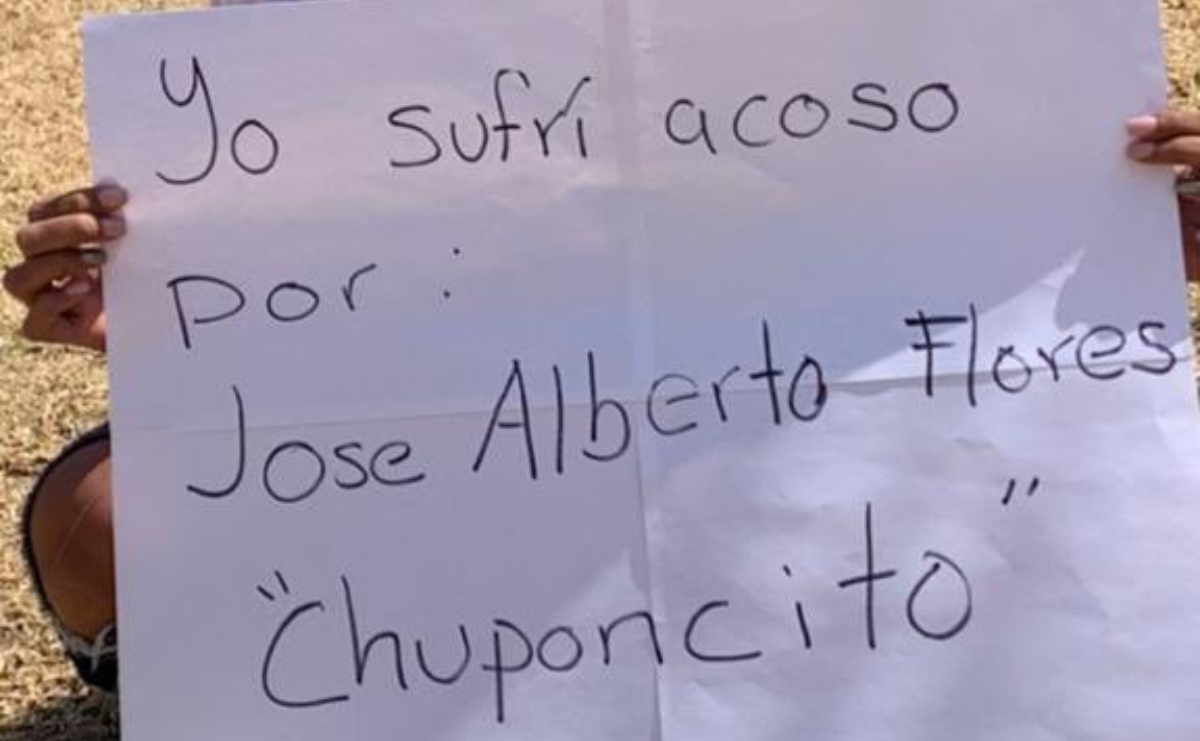 Yo sufrí acoso
por:
Jose Alberto Flores
"Chuponcito"